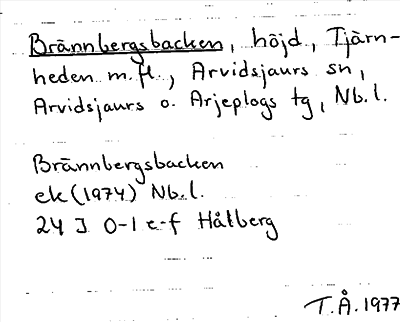 Brännbergsbacken, höjd, Tjärn-
heden m.fl., Arvidsjaurs sn,
Arvidsjaurs o. Arjeplogs tg, Nb.l.
Brännbergsbacken
ek (1974) Nb.l.
24 J 0-1 e-f Håtberg
T.Å. 1977